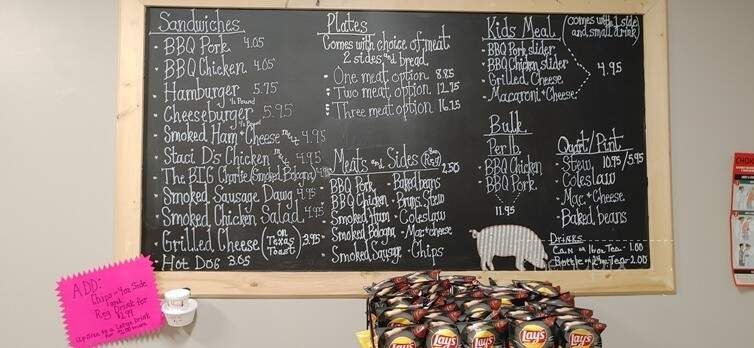 Sandwiches
• BBQ Pork 4.05
• BBQ Chicken 4.05
• Hamburger 5.75
1/2 Pound
• Cheeseburger 5.95
1/2 Pound
• Smoked Ham + Cheese melt 4.95
• Staci D's Chicken melt 4.95
• The BIG Charlie (Smoked Bologna) 4.95
• Smoked Sausage Dawg 4.95
• Smoked Chicken Salad 4.95
• Grilled Cheese (on Texas Toast) 3.95
• Hot Dog 3.65
Plates
Comes with choice of meat
2 sides and bread
• One meat option 8.85
• Two meat option 12.75
• Three meat option 16.25
Meats and Sides 2.50
BBQ Pork
BBQ Chicken
Smoked Ham
Smoked Bologna
Smoked Sausage
- Baked beans
- Bruns. Stew
- Coleslaw
- Mac + cheese
- Chips
Kids Meal (comes with 1 side and small drink)
- BBQ Pork slider
- BBQ Chicken slider
- Grilled Cheese
- Macaroni + Cheese
4.95
Bulk
Per lb
- BBQ Chicken
- BBQ Pork
11.95
Quart/Pint
- Stew 10.95/5.95
- Coleslaw
- Mac + Cheese
- Baked beans
Drinks
Can or 16oz Tea - 1.00
Bottle or Tea - 2.00
ADD:
Chips - 4oz Side
and
Reg Drink for
$2.99
Up Size to a Large Drink
Lay's
Lay's
Lay's
Lay's
Lay's
CHOK